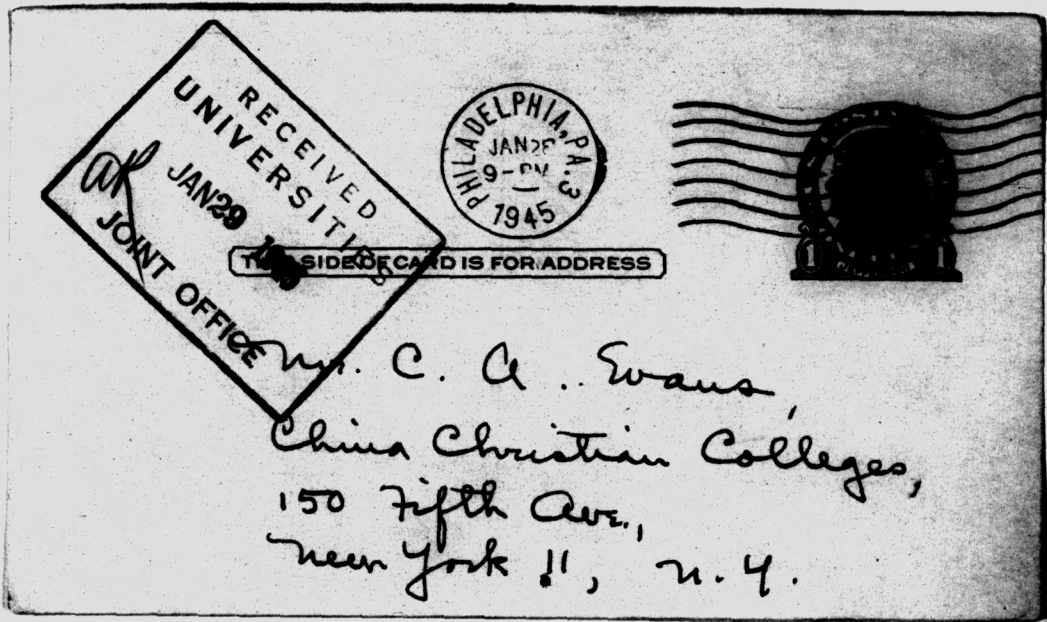 RECEIVED
UNIVERSITIES
JAN 29 1945
JOINT OFFICE
PHILADELPHIA, PA. 3
JAN 28
9-PM
1945
THIS SIDE OF CARD IS FOR ADDRESS
1 1
Mr. C. A. Evans,
China Christian Colleges,
150 Fifth Ave.,
New York 11, N. Y.